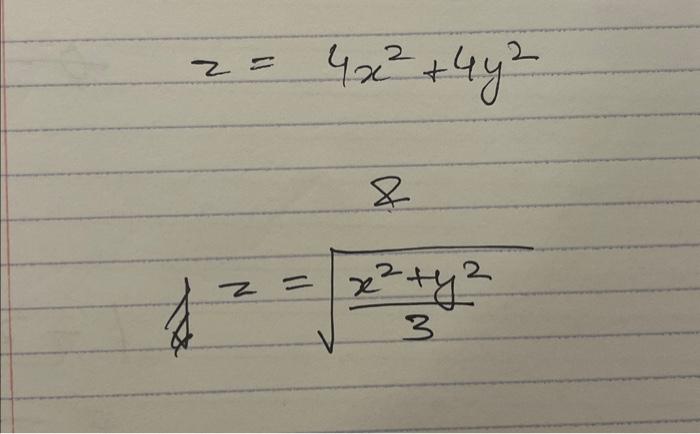 z = 4x² + 4y²
&
z = √((x² + y²)/3)